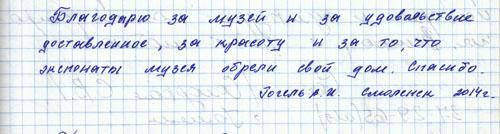 Благодарю за музей и за удовольствие
доставленное, за красоту и за то, что
экспонаты музея обрели свой дом. Спасибо.
Гогель А.И. Смоленск 2014г.